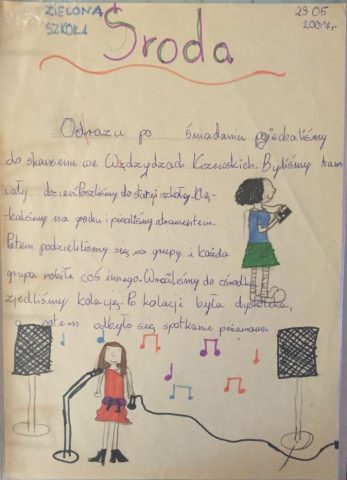 ZIELONA
SZKOŁA
29 05
2007r
Środa
Odrazu po śniadaniu pojechaliśmy
do skansenu we Wdzydzach Kiszewskich. Byliśmy tam
cały dzień. Poszliśmy do starej szkoły. Klę-
kaliśmy na grochu i pisaliśmy atramentem.
Potem podzieliliśmy się na grupy i każda
grupa robiła coś innego. Wróciliśmy do ośrodka
zjedliśmy kolację. Po kolacji była dyskoteka,
a potem odbyło się spotkanie piżamowe.